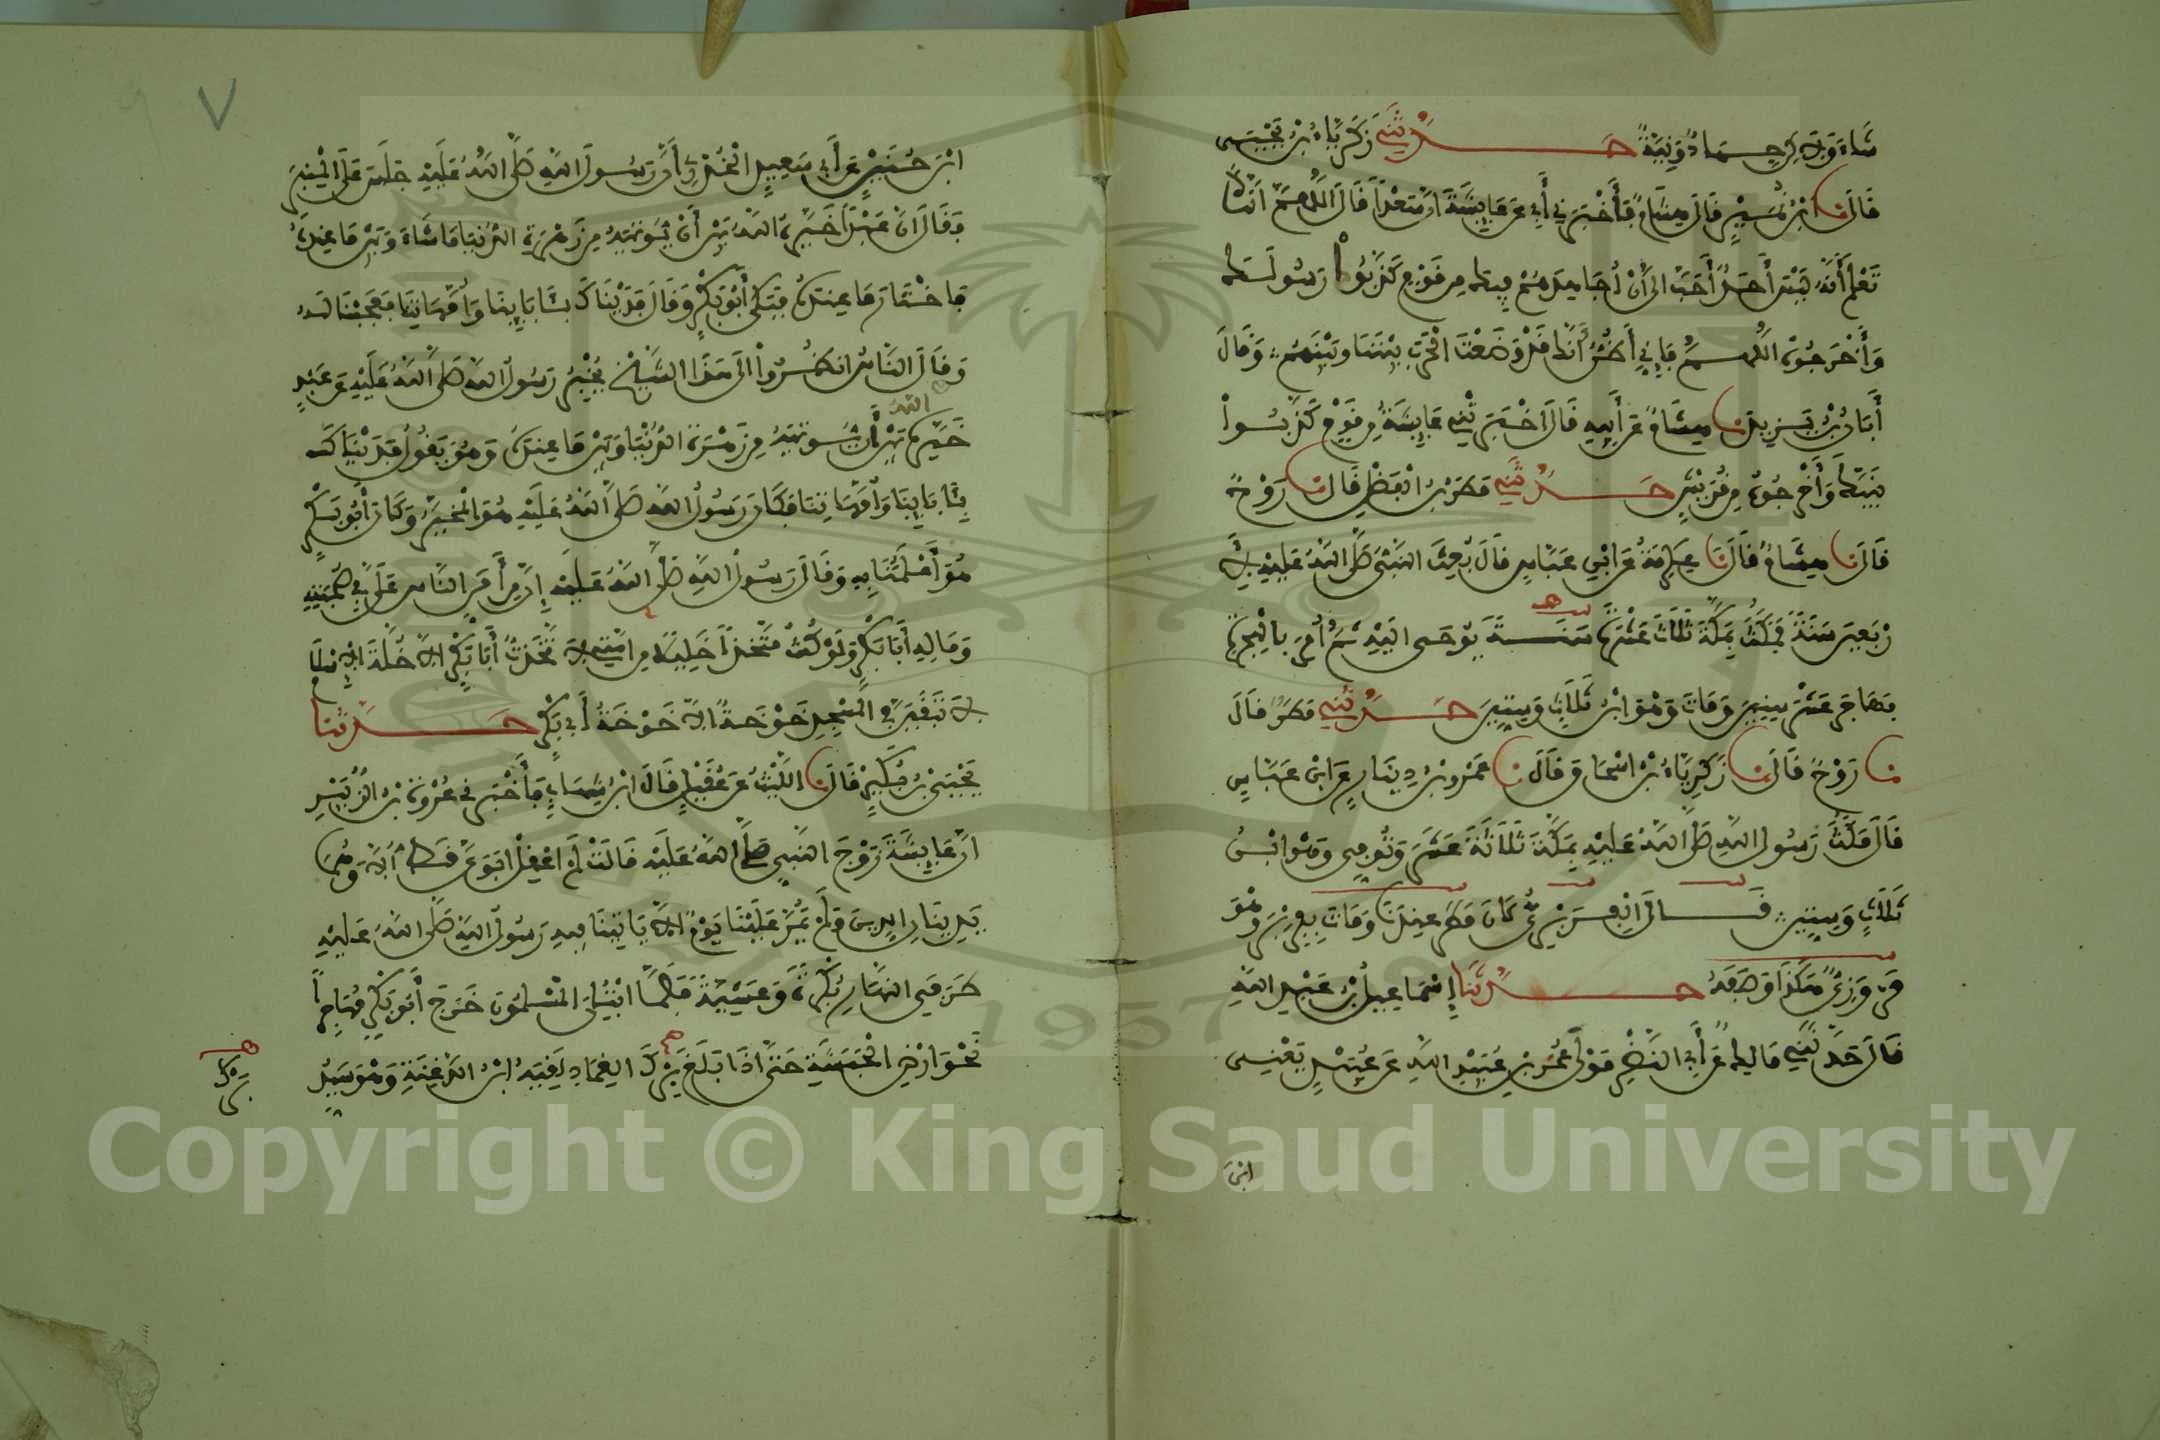 شَاءَ وَلَكِن جِهَادٌ وَنِيَّةٌ حَدَّثَنِي زَكَرِيَّاءُ بْنُ يَحْيَى
قَالَ نَا ابْنُ نُمَيْرٍ قَالَ هِشَامٌ فَأَخْبَرَنِي أَبِي عَن عَايِشَةَ أَنَّ سَعْدًا قَالَ اللَّهُمَّ انَّكَ
تَعْلَمُ أَنَّهُ لَيْسَ أَحَدٌ أَحَبَّ الَيَّ أَنْ أُجَاهِدَهُمْ فِيكَ مِن قَوْمٍ كَذَّبُواْ رَسُولَكَ
وَأَخْرَجُوهُ اللَّهُمَّ فَإِنِّي أَظُنُّ أَنَّكَ قَدْ وَضَعْتَ الْحَرْبَ بَيْنَنَا وَبَيْنَهُمْ وَقَالَ
أَبَانُ بْنُ يَزِيدَ نَا هِشَامٌ عَن أَبِيهِ قَالَ اخْبَرَتْنِي عَايِشَةُ مِن قَوْمٍ كَذَّبُواْ
نَبِيَّكَ وَأَخْرَجُوهُ مِن قُرَيْشٍ حَدَّثَنِي مَطَرُ بْنُ الْفَضْلِ قَالَ نَا رَوْحٌ
قَالَ نَا هِشَامٌ قَالَ نَا عِكْرِمَةُ عَن ابْنِ عَبَّاسٍ قَالَ بُعِثَ النَّبِيُّ صَلَّى اللَّهُ عَلَيْهِ لِأَ
رْبَعِينَ سَنَةً فَمَكَثَ بِمَكَّةَ ثَلَاثَ عَشْرَةَ سَنَةً يُوحَى الَيْهِ ثُمَّ أُمِرَ بِالْهِجْرَةِ
فَهَاجَرَ عَشْرَ سِنِينَ وَمَاتَ وَهْوَ ابْنُ ثَلَاثٍ وَسِتِّينَ حَدَّثَنِي مَطَرٌ قَالَ
نَا رَوْحٌ قَالَ نَا زَكَرِيَّاءُ بْنُ اسْحَاقَ قَالَ نَا عَمْرُو بْنُ دِينَارٍ عَن ابْنِ عَبَّاسٍ
قَالَ مَكَثَ رَسُولُ اللَّهِ صَلَّى اللَّهُ عَلَيْهِ بِمَكَّةَ ثَلَاثَةَ عَشَرَ وَتُوُفِّيَ وَهْوَ ابْنُ
ثَلَاثٍ وَسِتِّينَ قَالَ الْفِرَبْرِيُّ كَانَ مَطَرٌ عِنْدَنَا وَمَاتَ بِفِرَبْرَ وَهْوَ
مَرْوَزِيٌّ هَكَذَا وَصَفَهُ حَدَّثَنَا إِسْمَاعِيلُ بْنُ عَبْدِ اللَّهِ
قَالَ حَدَّثَنِي مَالِكٌ عَن أَبِي النَّضْرِ مَوْلَى عُمَرَ بْنِ عُبَيْدِ اللَّهِ عَن عُبَيْدٍ يَعْنِي
ابْنَ
٧
ابْنَ حُنَيْنٍ عَن أَبِي سَعِيدٍ الْخُدْرِيِّ أَنَّ رَسُولَ اللَّهِ صَلَّى اللَّهُ عَلَيْهِ جَلَسَ عَلَى الْمِنْبَرِ
فَقَالَ انَّ عَبْدًا خَيَّرَهُ اللَّهُ بَيْنَ أَنْ يُؤْتِيَهُ مِن زَهْرَةِ الدُّنْيَا مَا شَاءَ وَبَيْنَ مَا عِنْدَهُ
فَاخْتَارَ مَا عِنْدَهُ فَبَكَى أَبُو بَكْرٍ وَقَالَ فَدَيْنَاكَ بِئَابَايِنَا وَأُمَّهَاتِنَا فَعَجِبْنَا لَهُ
وَقَالَ النَّاسُ انْظُرُواْ الَى هَذَا الشَّيْخِ يُخْبِرُ رَسُولُ اللَّهِ صَلَّى اللَّهُ عَلَيْهِ عَن عَبْدٍ
خَيَّرَهُ اللَّهُ بَيْنَ أَن يُؤْتِيَهُ مِن زَهْرَةِ الدُّنْيَا وَبَيْنَ مَا عِنْدَهُ وَهُوَ يَقُولُ فَدَيْنَاكَ
بِئَابَايِنَا وَأُمَّهَاتِنَا فَكَانَ رَسُولُ اللَّهِ صَلَّى اللَّهُ عَلَيْهِ هُوَ الْمُخَيَّرُ وَكَانَ أَبُو بَكْرٍ
هُوَ أَعْلَمُنَا بِهِ وَقَالَ رَسُولُ اللَّهِ صَلَّى اللَّهُ عَلَيْهِ إِنَّ مِن أَمَنِّ النَّاسِ عَلَيَّ فِي صُحْبَتِهِ
وَمَالِهِ أَبَا بَكْرٍ وَلَوْ كُنْتُ مُتَّخِذًا خَلِيلًا مِن امَّتِي لَاتَّخَذْتُ أَبَا بَكْرٍ الَّا خُلَّةَ الِاسْلَامِ
لَا تَبْقَيَنَّ فِي الْمَسْجِدِ خَوْخَةٌ الَّا خَوْخَةُ أَبِي بَكْرٍ حَدَّثَنَا
يَحْيَى بْنُ بُكَيْرٍ قَالَ نَا اللَّيْثُ عَن عُقَيْلٍ قَالَ ابْنُ شِهَابٍ فَأَخْبَرَنِي عُرْوَةُ بْنُ الزُّبَيْرِ
أَنَّ عَايِشَةَ زَوْجَ النَّبِيِّ صَلَّى اللَّهُ عَلَيْهِ قَالَتْ لَمْ اعْقِلْ ابَوَيَّ قَطُّ الَّا وَهُمَا
يَدِينَانِ الدِّينَ وَلَمْ يَمُرَّ عَلَيْنَا يَوْمٌ الَّا يَاتِينَا فِيهِ رَسُولُ اللَّهِ صَلَّى اللَّهُ عَلَيْهِ
طَرَفَيِ النَّهَارِ بُكْرَةً وَعَشِيَّةً فَلَمَّا ابْتُلِيَ الْمُسْلِمُونَ خَرَجَ أَبُو بَكْرٍ مُهَاجِرًا
نَحْوَ ارْضِ الْحَبَشَةِ حَتَّى اذَا بَلَغَ بَرْكَ الْغِمَادِ لَقِيَهُ ابْنُ الدَّغِنَةِ وَهْوَ سَيِّدُ
بَرْكَ
Copyright © King Saud University
1957